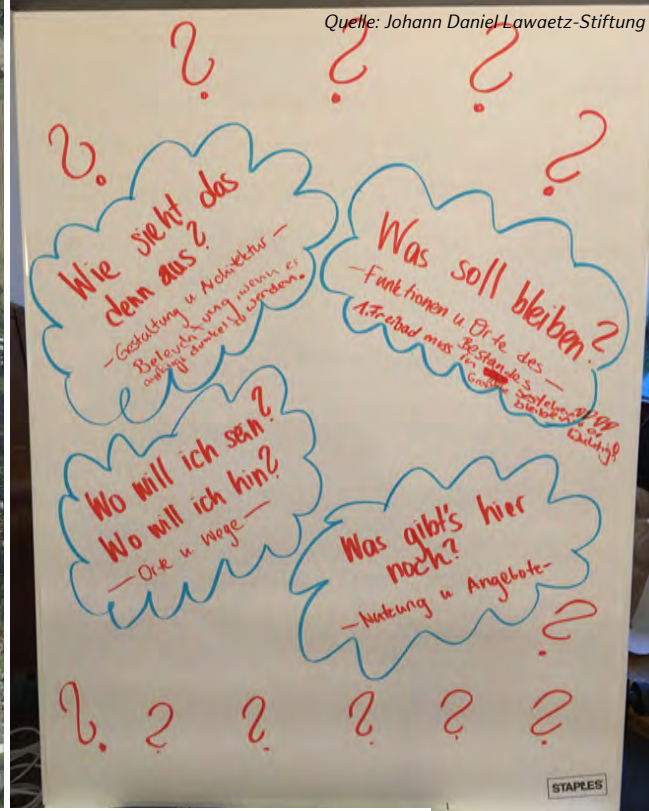 Quelle: Johann Daniel Lawaetz-Stiftung
? ? ?
? ?
Wie sieht das
denn aus?
– Gestaltung u Architektur –
Beleuchtung, wenn es
anfängt dunkel zu werden.
Was soll bleiben?
– Funktionen u. Orte des –
Bestandes
1. Freibad muss in
Größe bestehen
bleiben!
wichtig!
Wo will ich sein?
Wo will ich hin?
– Orte u. Wege –
Was gibt's hier
noch?
– Nutzung u Angebote –
?
? ? ? ? ? ?
STAPLES